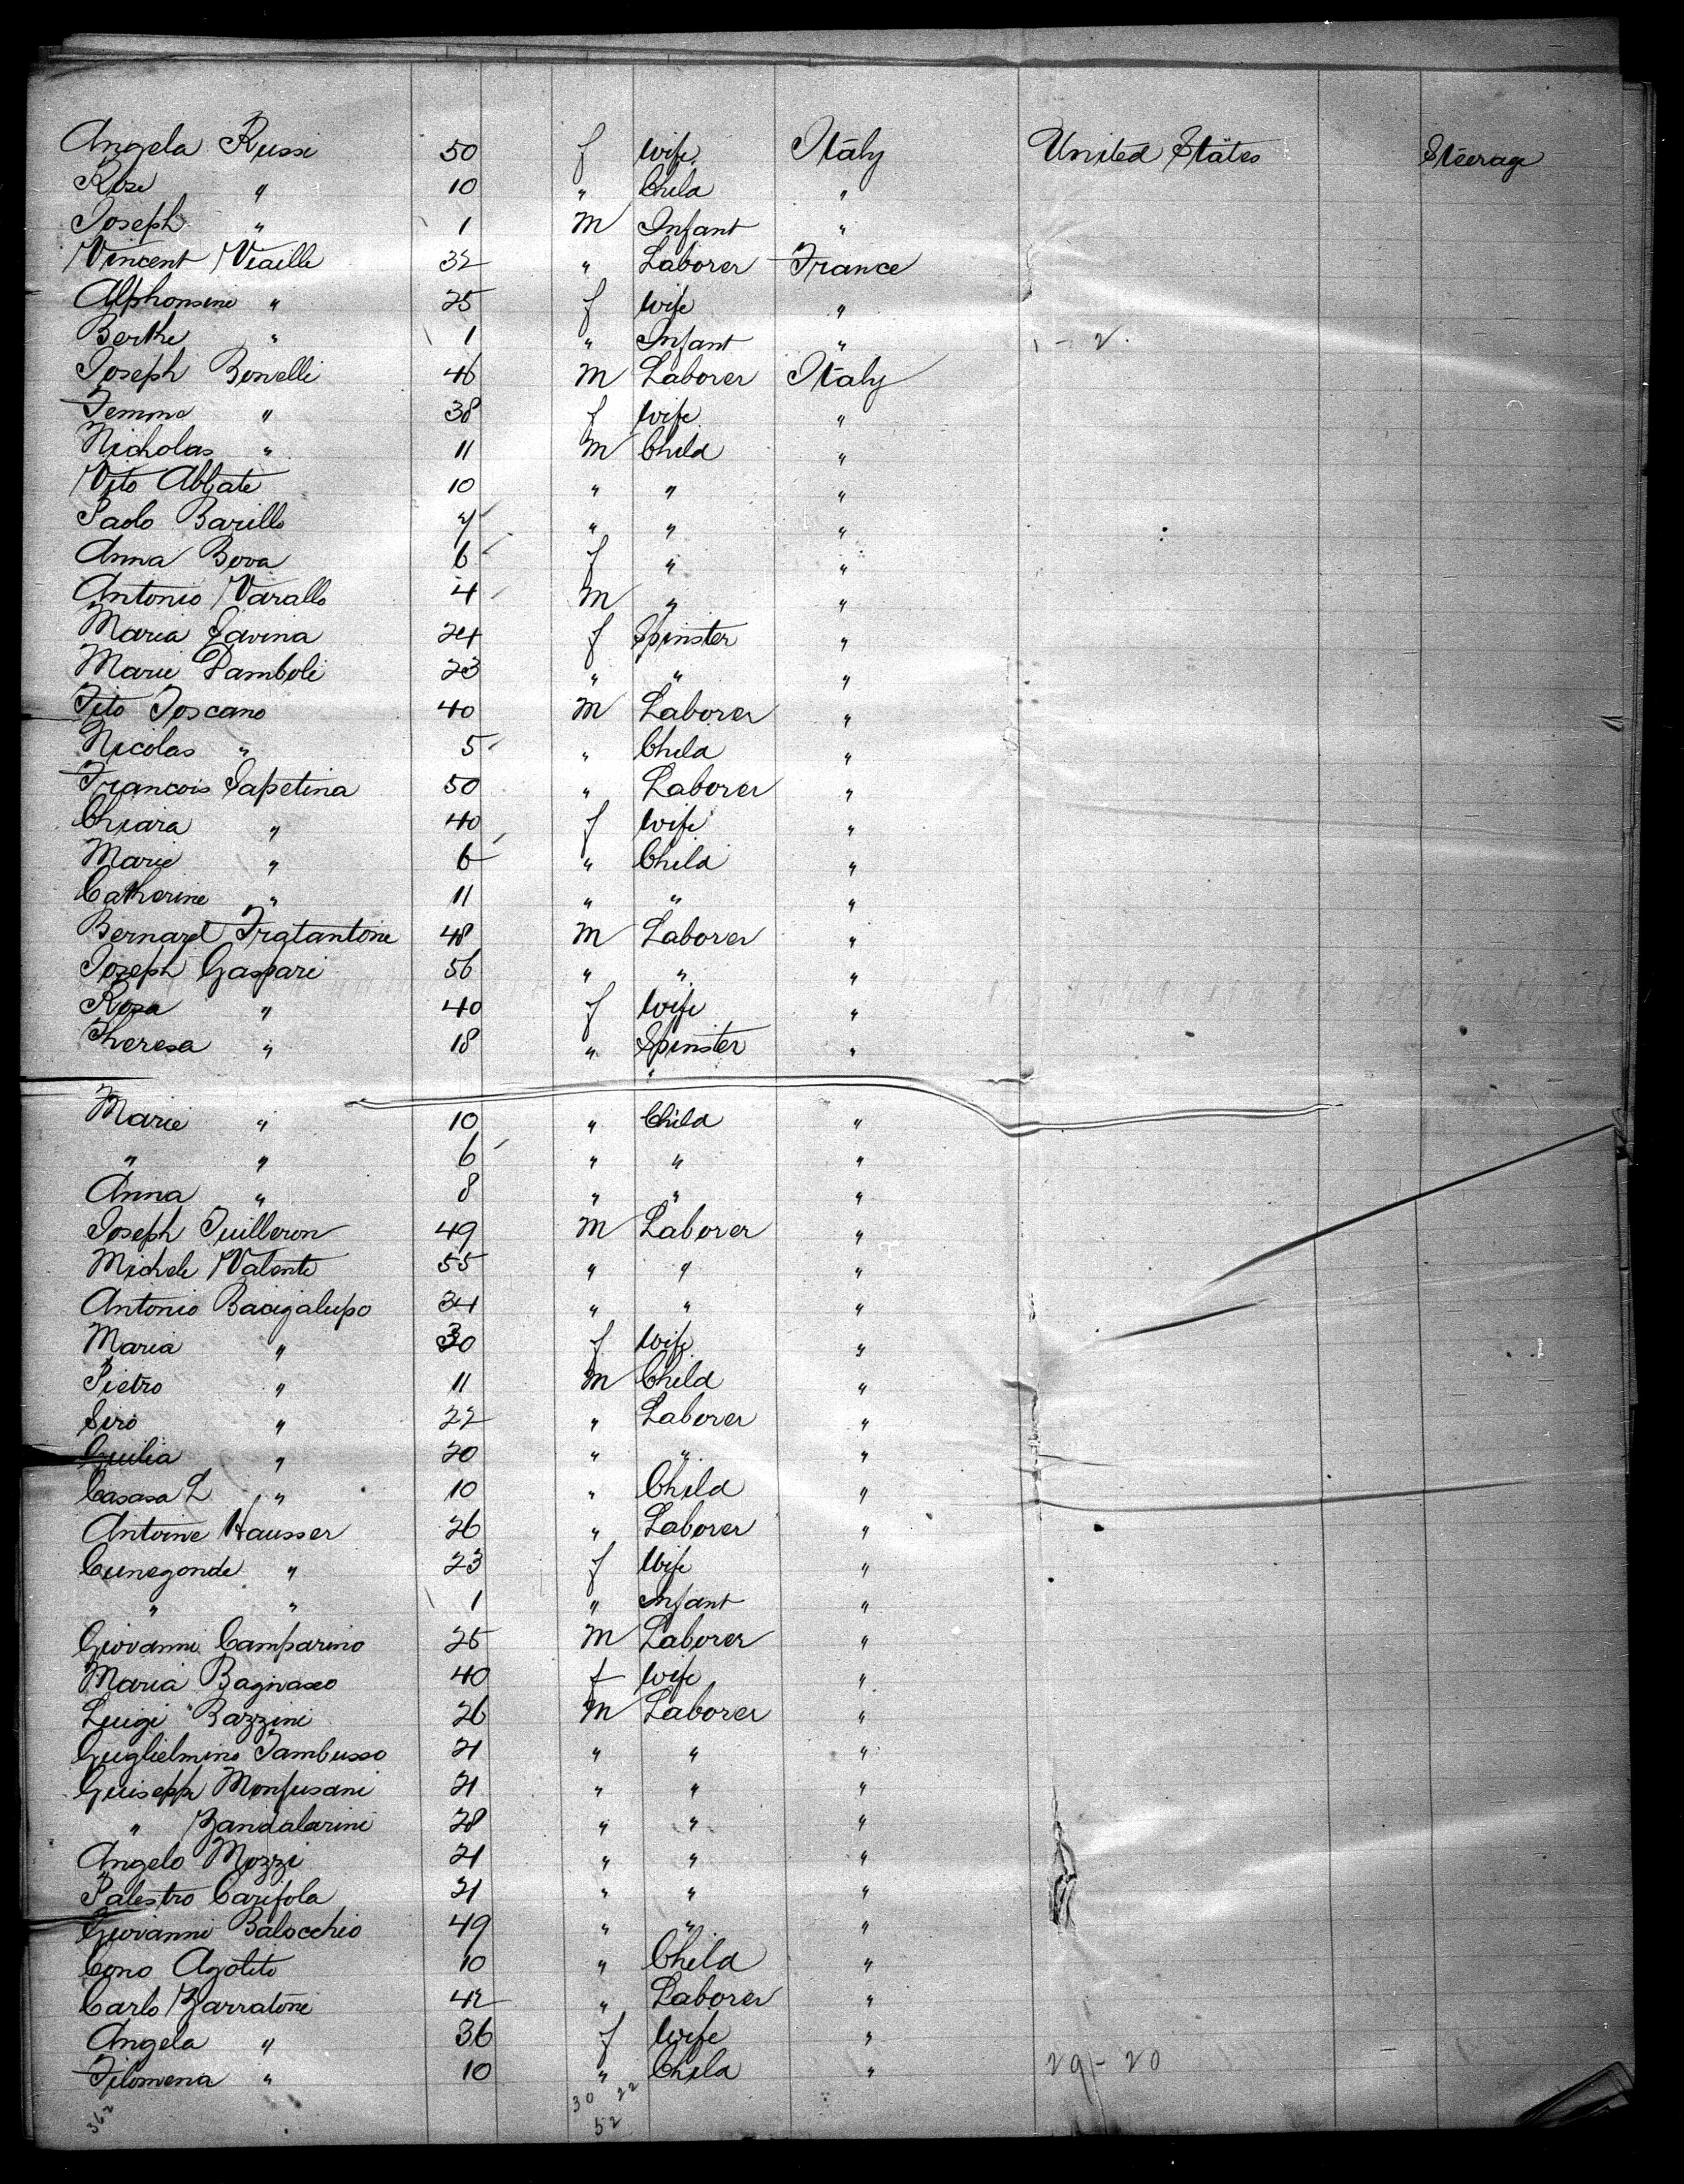 Angela Russi 50 f Wife Italy United States Steerage
Rose " 10 " Child "
Joseph " 1 m Infant "
Vincent Viaille 32 " Laborer France
Alphonsine " 25 f Wife "
Berthe " 1 " Infant " 1 - 2.
Joseph Bonelli 46 m Laborer Italy
Femma " 38 f Wife "
Nicholas " 11 m Child "
Vito Abbate 10 " " "
Paolo Barillo 7 " " "
Anna Bova 6 f " "
Antonio Varallo 4 m " "
Maria Savina 24 f Spinster "
Marie Damboli 23 " " "
Tito Toscano 40 m Laborer "
Nicolas " 5 " Child "
Francois Sapetina 50 " Laborer "
Chiara " 40 f Wife "
Marie " 6 " Child "
Catherine " 11 " " "
Bernard Fratantone 48 m Laborer "
Joseph Gaspari 56 " " "
Rosa " 40 f Wife "
Theresa " 18 " Spinster "
Marie " 10 " Child "
" " 6 " " "
Anna " 8 " " "
Joseph Juilleron 49 m Laborer "
Michele Valente 55 " " "
Antonio Bacigalupo 34 " " "
Maria " 30 f Wife "
Pietro " 11 m Child "
Siro " 22 " Laborer "
Guilia " 20 " " "
Casasa L " 10 " Child "
Antoine Hausser 26 " Laborer "
Cunegonde " 23 f Wife "
" " 1 " Infant "
Giovanni Camparino 25 m Laborer "
Maria Bagnasco 40 f Wife "
Luigi Bazzini 26 m Laborer "
Guglielmino Tambusso 21 " " "
Guiseph Monfusani 21 " " "
" Zandalarini 28 " " "
Angelo Mozzi 21 " " "
Palestro Carifola 21 " " "
Giovanni Balocchio 49 " " "
Cono Agoleto 10 " Child "
Carlo Zarratone 42 " Laborer "
Angela " 36 f Wife "
Filomena " 10 " Child " 29 - 20
30 22
362 52